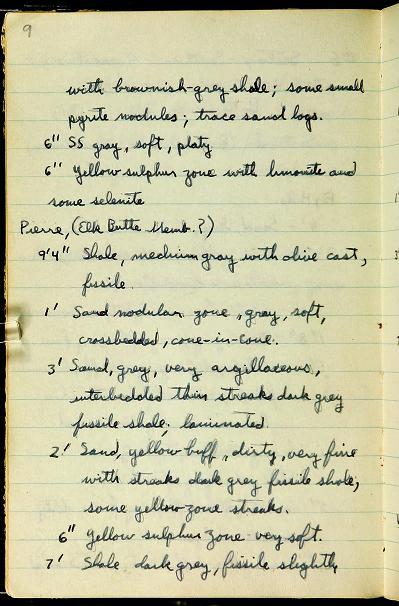 9
with brownish-grey shale; some small
pyrite nodules; trace sand logs.
6" SS gray, soft, platy
6" Yellow sulphur zone with limonite and
some selenite
Pierre, (Elk Butte Memb.?)
9'4" Shale, medium gray with olive cast,
fissile.
1' Sand nodular zone, gray, soft,
crossbedded, cone-in-cone.
3' Sand, grey, very argillaceous,
interbedded thin streaks dark grey
fissile shale, laminated.
2' Sand, yellow-buff, dirty, very fine
with streaks dark grey fissile shale,
some yellow zone streaks.
6" Yellow sulphur zone very soft.
7' Shale dark grey, fissile slightly